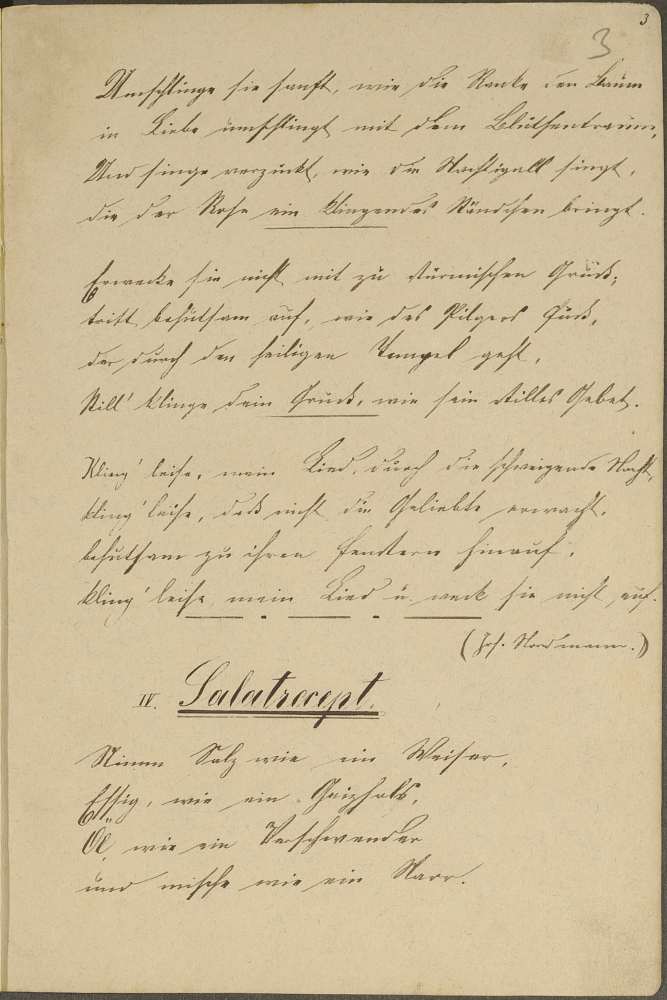 3
3
Umschlinge sie sanft, wie die Ranke den Baum
in Liebe umschlingt mit dem Blüthentraum,
Und singe verzückt, wie die Nachtigall singt,
die der Rose ein klingendes Ständchen bringt.
Erwecke sie nicht mit zu stürmischen Gruß;
tritt behutsam auf, wie des Pilgers Fuß,
der durch den heiligen Tempel geht,
Still' klinge dein Gruß, wie sein stilles Gebet.
Kling' leise, mein Lied, durch die schweigende Nacht,
kling' leise, daß nicht die Geliebte erwacht,
behutsam zu ihren Fenstern hinauf,
kling' leise, mein Lied u. weck sie nicht auf.
(Joh. Nordmann.)
IV. Salatrecept.
Nimm Salz wie ein Weiser,
Essig, wie ein Geizhals,
Öl, wie ein Verschwender
und mische wie ein Narr.